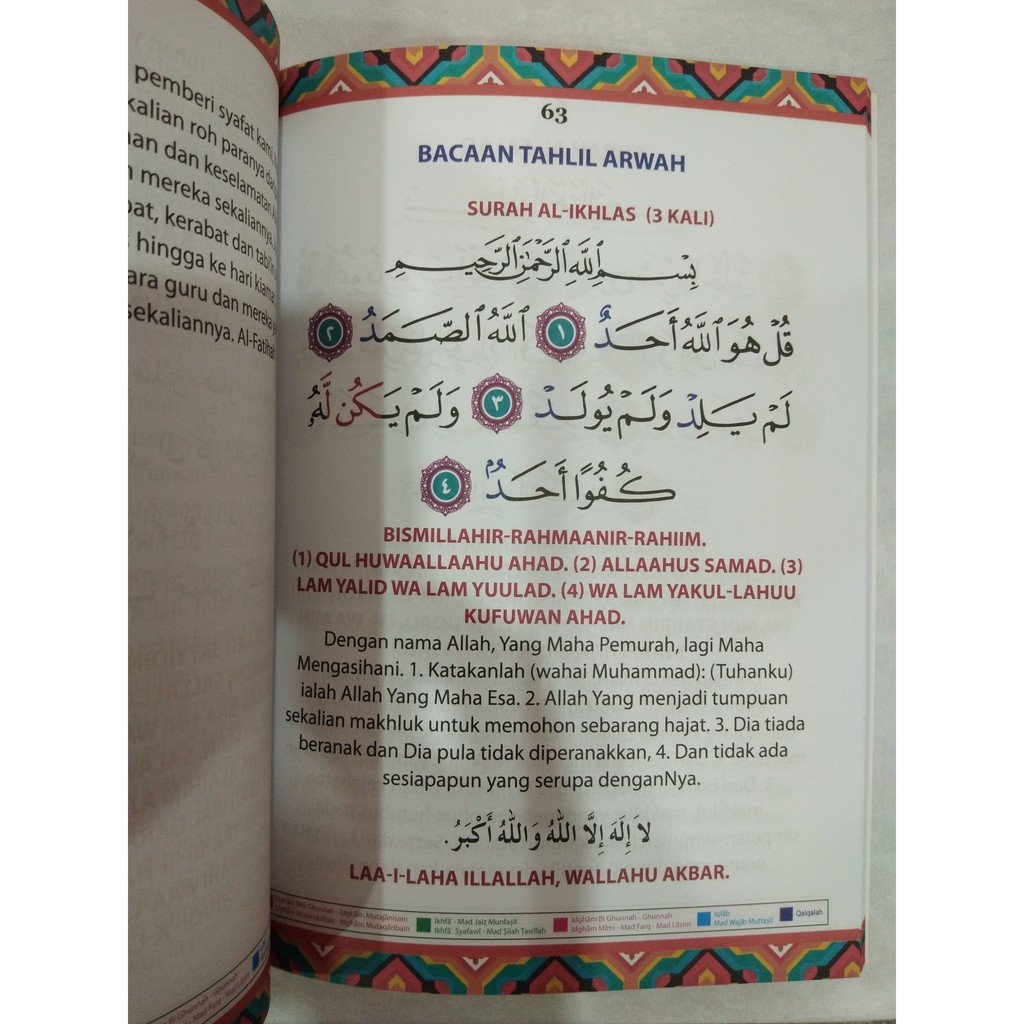 pemberi syafat kami,
kalian roh paranya
dan keselamatan
mereka sekaliannya.
kerabat dan
hingga ke hari kiamat
guru dan mereka
sekaliannya. Al-Fatihah
63
BACAAN TAHLIL ARWAH
SURAH AL-IKHLAS (3 KALI)
بِسْمِ ٱللَّهِ ٱلرَّحْمَٰنِ ٱلرَّحِيمِ
قُلْ هُوَ ٱللَّهُ أَحَدٌ ١ ٱللَّهُ ٱلصَّمَدُ ٢
لَمْ يَلِدْ وَلَمْ يُولَدْ ٣ وَلَمْ يَكُن لَّهُۥ
كُفُوًا أَحَدٌۢ ٤
BISMILLAHIR-RAHMAANIR-RAHIIM.
(1) QUL HUWAALLAAHU AHAD. (2) ALLAAHUS SAMAD. (3)
LAM YALID WA LAM YUULAD. (4) WA LAM YAKUL-LAHUU
KUFUWAN AHAD.
Dengan nama Allah, Yang Maha Pemurah, lagi Maha
Mengasihani. 1. Katakanlah (wahai Muhammad): (Tuhanku)
ialah Allah Yang Maha Esa. 2. Allah Yang menjadi tumpuan
sekalian makhluk untuk memohon sebarang hajat. 3. Dia tiada
beranak dan Dia pula tidak diperanakkan, 4. Dan tidak ada
sesiapapun yang serupa denganNya.
لاَ إِلَهَ إِلَّا اللهُ وَاللهُ أَكْبَرُ.
LAA-I-LAHA ILLALLAH, WALLAHU AKBAR.
Idghām Mutajānisain
Idghām Mutaqāribain
Ikhfā' - Mad Jaiz Munfaṣil
Ikhfā' Syafawī - Mad Ṣilah Ṭawīlah
Idghām Bi Ghunnah - Ghunnah
Idghām Mīmi - Mad Farq - Mad Lāzim
Iqlāb
Mad Wajib Muttaṣil
Qalqalah